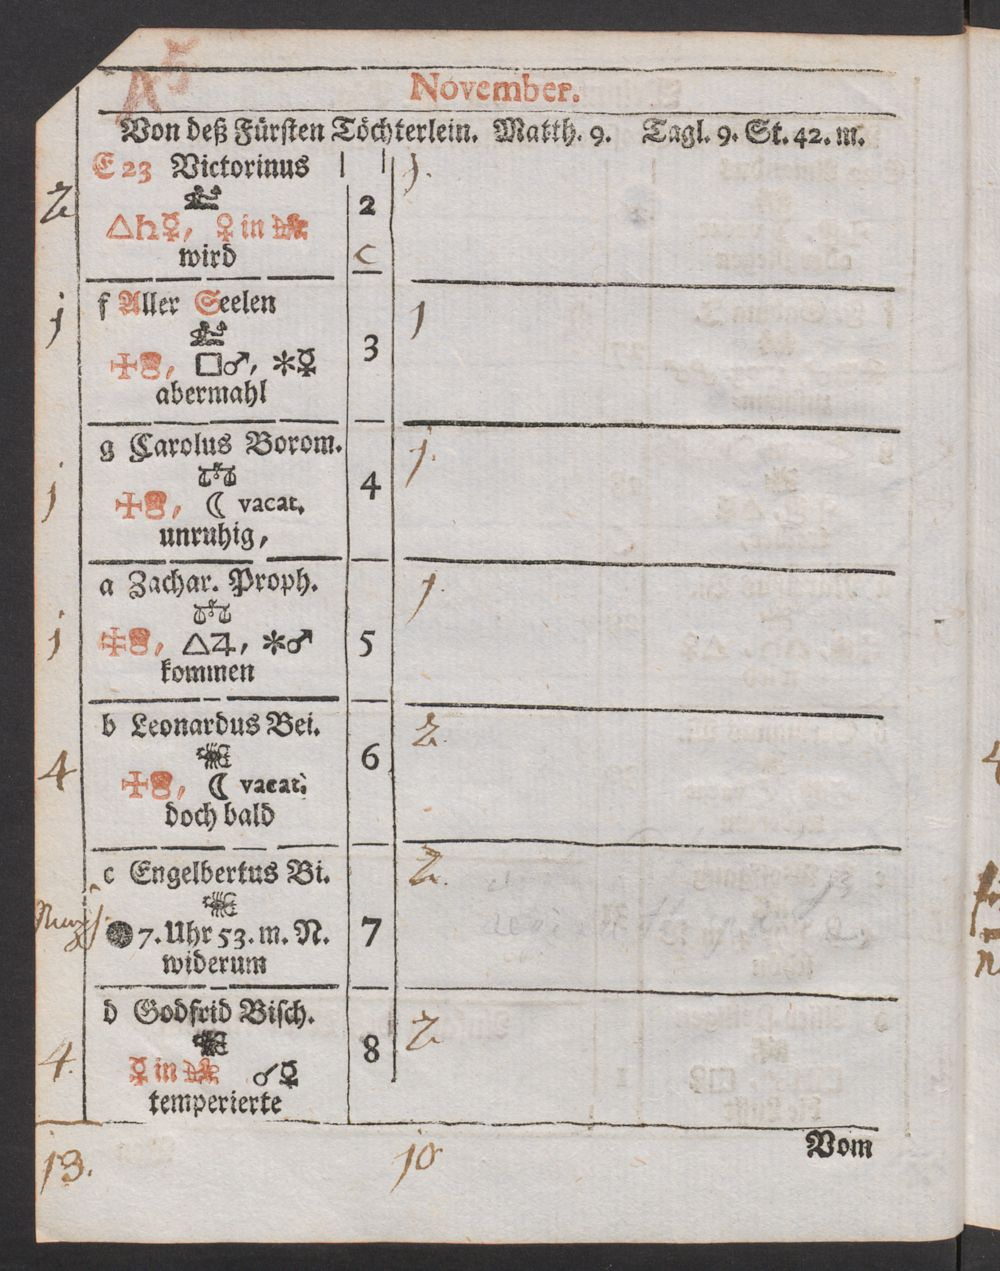 A5
November.
Von deß Fürsten Töchterlein. Matth. 9. Tagl. 9. St. 42. m.
2 E 23 Victorinus 2 1.
△♄☿, ♀ in
wird C
j f Aller Seelen 3 1
□♂, ✶☿
abermahl
j g Carolus Borom. 4 1.
☾ vacat.
unruhig,
j a Zachar. Proph. 5 1.
△♃, ✶♂
kommen
4 b Leonardus Bei. 6 2.
☾ vacat.
doch bald
c Engelbertus Bi. 7 2.
● 7. Uhr 53. m. N.
widerum
4. d Godfrid Bisch. 8 2
☿ in ☌☿
temperierte
Vom
13. 10